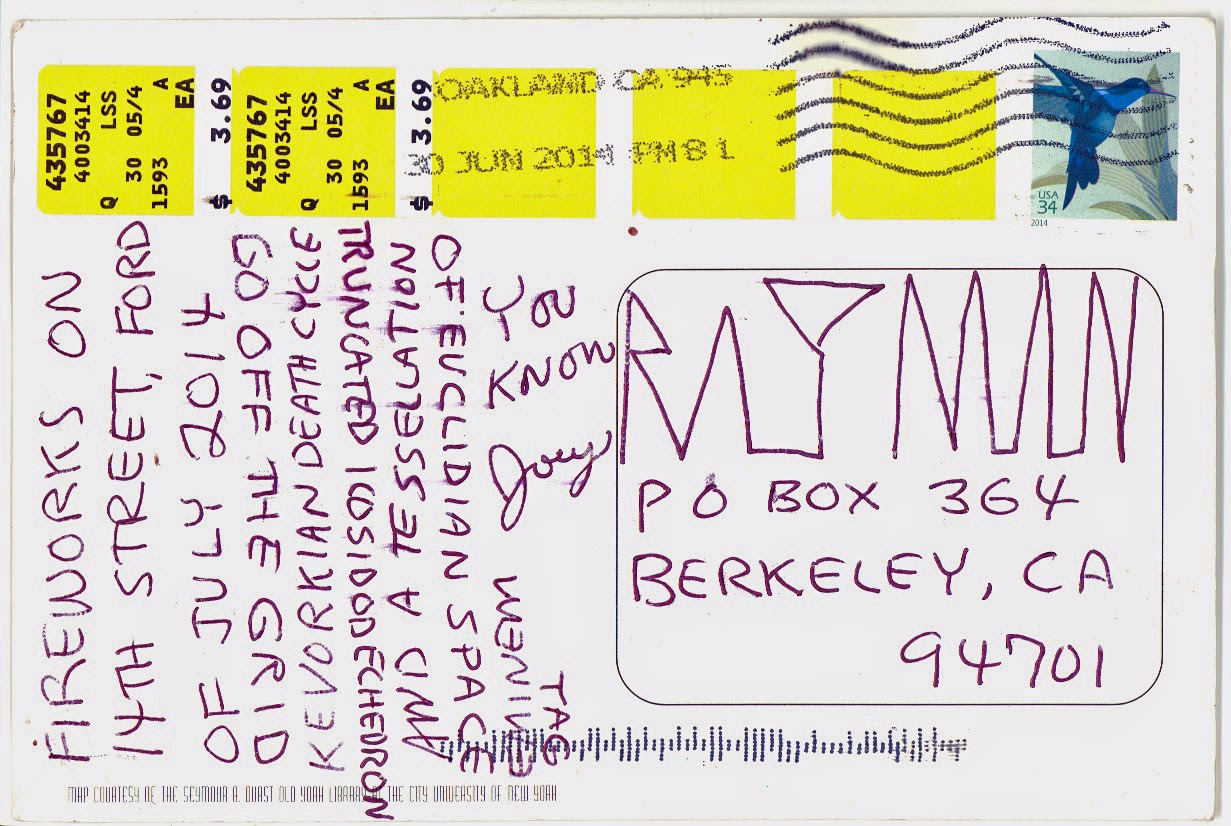 435767
4003414
Q LSS
30 05/4
1593 A
EA
$ 3.69
435767
4003414
Q LSS
30 05/4
1593 A
EA
$ 3.69
OAKLAND CA 945
30 JUN 2014 PM 8 L
USA
34
2014
FIREWORKS ON
14TH STREET, FORD
OF JULY 2014
GO OFF THE GRID
KEVORKIAN DEATH CYCLE
TRUNCATED IOSIDODECHEDRON
AND A TESSELLATION
OF EUCLIDIAN SPACE
KNOW
Joey
TAG
P O BOX 364
BERKELEY, CA
94701
MAP COURTESY OF THE SEYMOUR B. DURST OLD YORK LIBRARY AT THE CITY UNIVERSITY OF NEW YORK